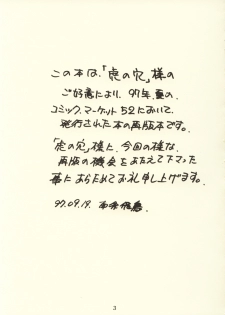 この本は、「虎の穴」様の
ご好意により、97年、夏の
コミックマーケット52において、
発行された本の再版本です。
「虎の穴」様に、今回の様な、
再版の機会をあたえて下さった
事にあらためてお礼申し上げます。
97.09.19.
3